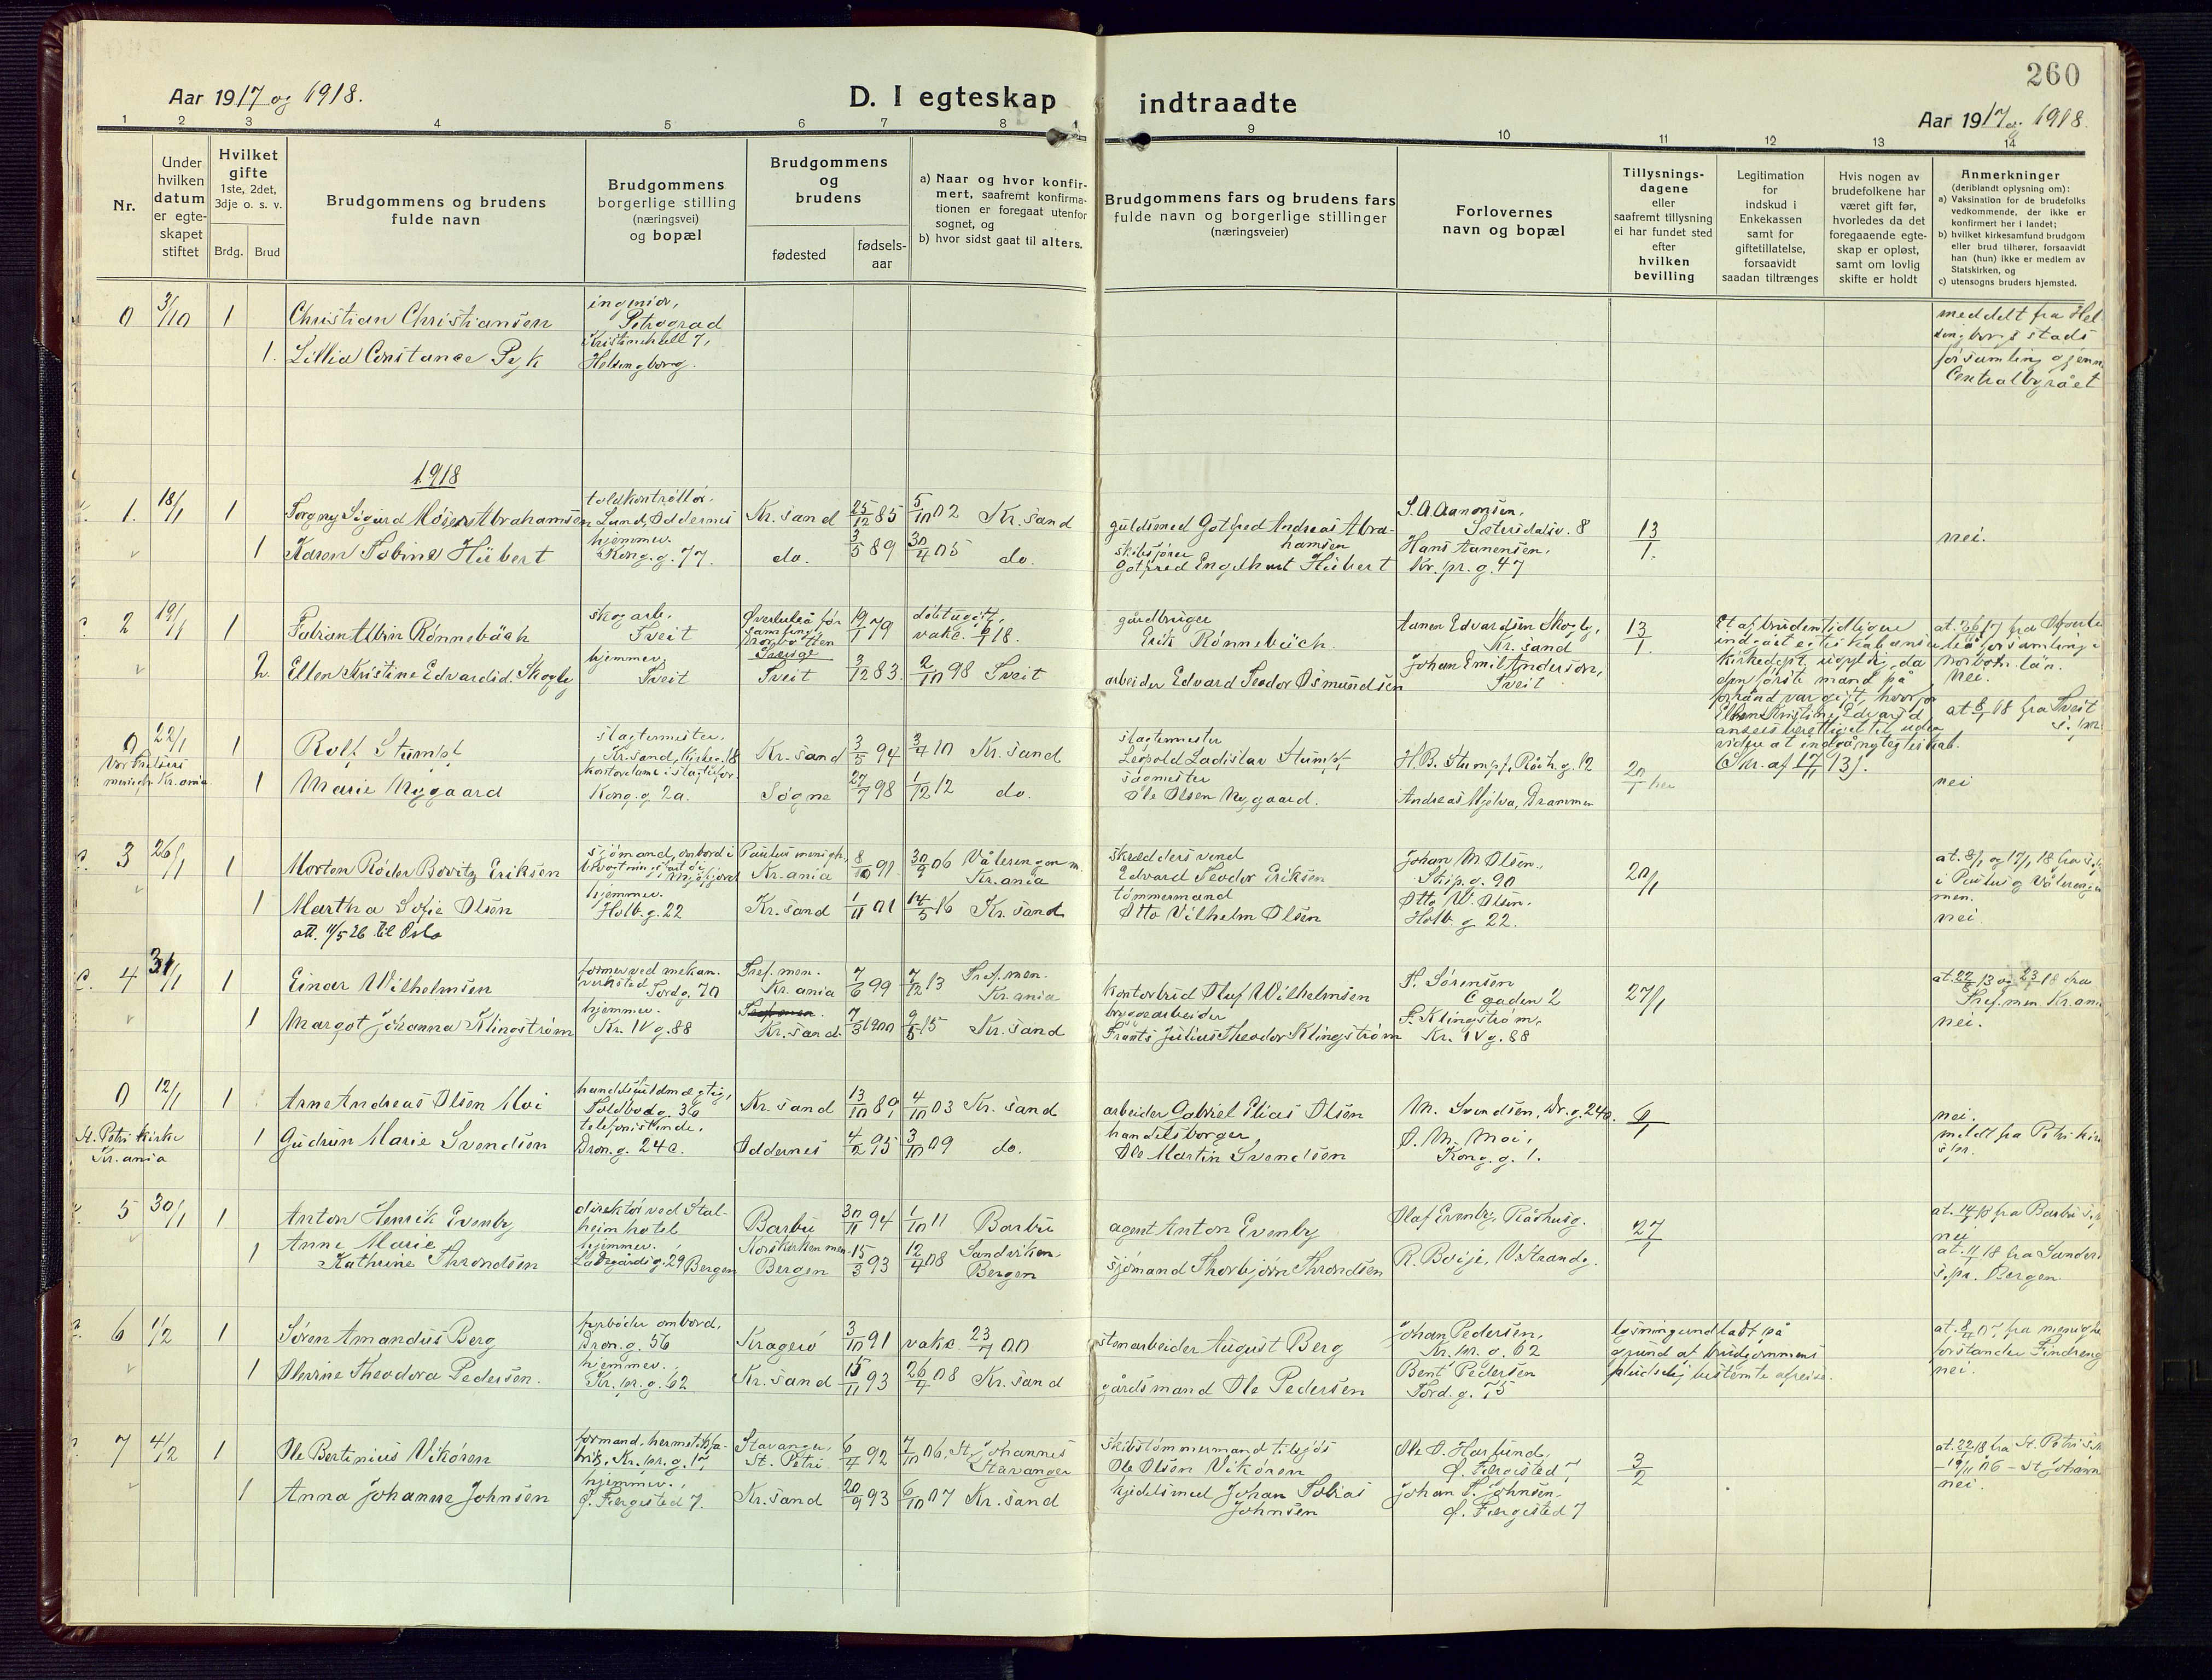 260
Aar 1917 og 1918.
D. I egteskap indtraadte
Aar 1917 og 1918.
1 2 3 4 5 6 7 8 9 10 11 12 13 14
Nr.
Under hvilken datum er egteskapet stiftet
Hvilket gifte
1ste, 2det, 3dje o. s. v.
Brdg. Brud
Brudgommens og brudens fulde navn
Brudgommens borgerlige stilling (næringsvei) og bopæl
Brudgommens og brudens
fødested
fødselsaar
a) Naar og hvor konfirmert, saafremt konfirmationen er foregaat utenfor sognet, og
b) hvor sidst gaat til alters.
Brudgommens fars og brudens fars fulde navn og borgerlige stillinger (næringsveier)
Forlovernes navn og bopæl
Tillysningsdagene eller saafremt tillysning ei har fundet sted efter hvilken bevilling
Legitimation for indskud i Enkekassen samt for giftetillatelse, forsaavidt saadan tiltrænges
Hvis nogen av brudefolkene har været gift før, hvorledes da det foregaaende egteskap er opløst, samt om lovlig skifte er holdt
Anmerkninger (deriblandt oplysning om):
a) Vaksination for de brudefolks vedkommende, der ikke er konfirmert her i landet;
b) hvilket kirkesamfund brudgom eller brud tilhører, forsaavidt han (hun) ikke er medlem av Statskirken, og
c) utensogns bruders hjemsted.
0 3/10 1 Christian Christiansen ingeniør, Petrograd
1. Lillia Constance Pyk Kristinehall 7, Helsingborg.
meddelt fra Helsingborgs stads forsamling gjenn. Centralbyrået
1918
1. 18/1 1 Torgny Sigurd Møser Abrahamsen toldkontrollør. Lund, Oddernes Kr.sand 25/12 85 5/10 02 Kr.sand guldsmed Gotfred Andreas Abrahamsen S. A. Aanonsen, Sætersdalsv. 8 13/1. nei.
1 Karen Tobine Hübert hjemmev. Kong.g. 77. do. 3/5 89 30/4 05 do. skibsfører Gotfred Engelhart Hübert Hans Aanensen, Kr. pr. g. 47
2 19/1 1 Fabian Albin Rønnebäck skogarb. Tveit Øverluleå församling, Norbotten Sverige 19/1 79 vakc. 18. gårdbruger Erik Rønnebäck. Aanen Edvardsen Skogly, Kr.sand 13/1.
2. Ellen Kristine Edvardid. Skogly hjemmev. Tveit Tveit 3/12 83. 2/10 98 Tveit arbeider Edvard Teodor Osmundsen Johan Emil Anderson, Tveit
Et af bruden tidligere indgåt egteskab ansees kirkedept. ugyldig, da den første mand på forhånd var gift, hvorfor Ellen Kristine Edvardd. ansees berettiget til uden videre at indgå nyt egteskab. (Skr. af 17/11 13).
nei.
at. 8/1 18 fra Tveit s. pr.
0 22/1 1 Rolf Stumpf slagtermester, Kr.sand, Kirkeg. 18 Kr.sand 3/5 94 3/4 10 Kr.sand slagtermester Leopold Ladislav Stumpf H. B. Stumpf, Rådh.g. 12 20/1 her
Vor Frelsers menigh. Kr.ania
1 Marie Nygaard kontordame i slagterfor. Kong.g. 2a. Søgne 27/7 98 1/12 12 do. sagmester Ole Olsen Nygaard. Andreas Mjelva, Drammen nei
3 26/1 1 Morten Røder Bovitz Eriksen sjømand, ombord i Paulus menigh. Kr.ania 8/10 91 30/9 06 Vålerengen m. Kr.ania skrædersvend Edvard Teodor Eriksen Johan M. Olsen, Skip.g. 90 20/1
at. 8/1 og 17/1 18 fra s.pr. i Paulus og Vålerengen men.
1 Martha Sofie Olsen hjemmev. Holb.g. 22 Kr.sand 1/11 01 14/5 16 Kr.sand tømmermand Otto Vilhelm Olsen Otto W. Olsen. Holb.g. 22. nei.
att. 11/5 26 til Oslo
4 31/1 1 Einar Wilhelmsen former ved mekan. verksted Tordg. 70 Tref. men. Kr.ania 7/6 99 7/12 13 Tref. men. Kr.ania kontorbud Oluf Wilhelmsen F. Sørensen C gaden 2 27/1
at. 22/1 13 og 23/1 18 fra Tref. men. Kr.ania
1 Margot Johanna Klingstrøm hjemmev. Kr. IV g. 88 Kr.sand 7/3 1900 9/5 15 Kr.sand bryggearbeider Frants Julius Theodor Klingstrøm F. Klingstrøm, Kr. IV g. 88 nei.
0 12/1 1 Arne Andreas Olsen Moi handelsfuldmægtig, Toldbodg. 36 Kr.sand 13/10 89 4/10 03 Kr.sand arbeider Gabriel Elias Olsen M. Svendsen, Dr.g. 24a. 6/1 nei.
St. Petri kirke Kr.ania
1 Gudrun Marie Svendsen telefonistinde, Dron.g. 24a. Oddernes 4/2 95 3/10 09 do. handelsborger Ole Martin Svendsen O. M. Moi, Kong.g. 1. meldt fra Petri kirke s.pr.
5 30/1 1 Anton Henrik Evenby direktør ved Stalheim hotel Barbu 30/11 94 1/10 11 Barbu agent Anton Evenby Olaf Evenby, Rådhusg. 27/1 at. 14/1 18 fra Barbu s.pr. nei
1 Anne Marie Kathrine Throndsen hjemmev. Ladegårdsg. 29 Bergen Korskirken men. Bergen 15/3 93 12/4 08 Sandviken, Bergen sjømand Thorbjørn Throndsen R. Boije, V. Strandg. at. 11/1 18 fra Sandv. s.pr. Bergen.
6 1/2 1 Søren Amandus Berg fyrbøder ombord, Dron.g. 56 Kragerø 3/10 91 vakc. 23/7 00 stenarbeider August Berg Johan Pedersen, Kr. pr. g. 62 lysning undladt på grund af brudgommens pludselig bestemte afreise.
at. 8/4 07 fra menighedsforstander Findreng
1 Olevine Theodora Pedersen. hjemmev. Kr. pr. g. 62 Kr.sand 15/11 93 26/4 08 Kr.sand gårdsmand Ole Pedersen Bent Pedersen Tord.g. 75 nei.
7 4/2 1 Ole Bertinius Vikøren formand, hermetikfabrik, Kr. pr. g. 17 Stavanger, St. Petri 6/4 92 7/10 06, St. Johannes Stavanger skibstømmermand tilsjøs Ole Olsen Vikøren Ole O. Haslund, Ø. Færgested 7 3/2
at. 22/1 18 fra St. Petri s.k. – 19/11 06 – St. Johann
1 Anna Johanne Johnsen hjemmev. Ø. Færgested 7. Kr.sand 20/9 93 6/10 07 Kr.sand kjedelsmed Johan Tobias Johnsen Johan T. Johnsen, Ø. Færgested 7 nei.